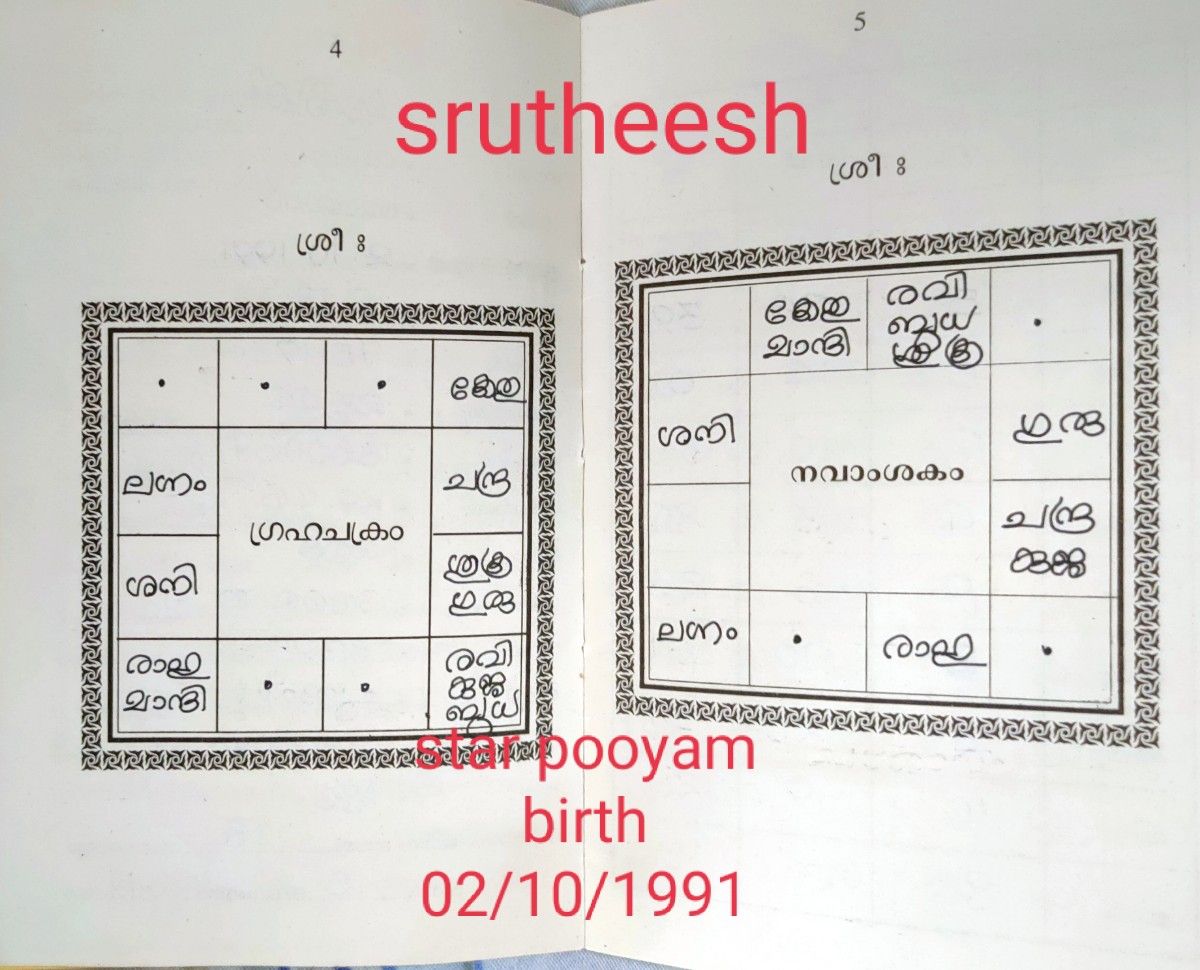 4
5
srutheesh
ശ്രീഃ
ശ്രീഃ
കേതു
ലഗ്നം
ചന്ദ്ര
ഗ്രഹചക്രം
ശനി
ശുക്ര
ഗുരു
രാഹു
മാന്ദി
രവി
കുജ
ബുധ
കേതു
മാന്ദി
രവി
ബുധ
ശുക്ര
ശനി
ഗുരു
നവാംശകം
ചന്ദ്ര
കുജ
ലഗ്നം
രാഹു
star pooyam
birth
02/10/1991